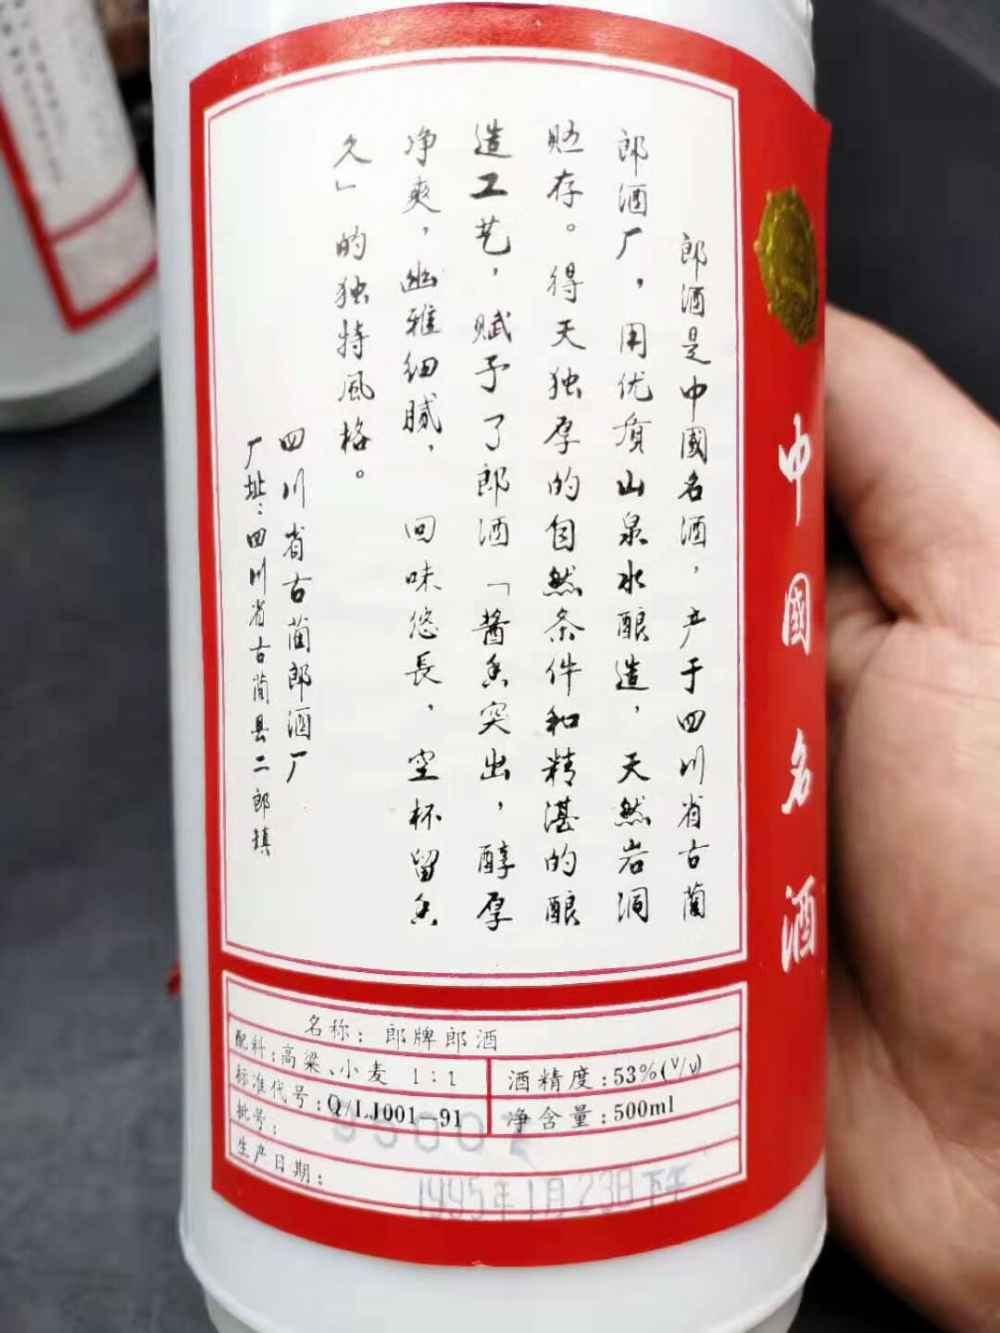 郎酒是中國名酒，产于四川省古蔺
郎酒厂，用优质山泉水酿造，天然岩洞
贮存。得天独厚的自然条件和精湛的酿
造工艺，赋予了郎酒「酱香突出，醇厚
净爽，幽雅细腻，回味悠長，空杯留香
久」的独特風格。
四川省古蔺郎酒厂
厂址：四川省古蔺县二郎镇
中國名酒
名称：郎牌郎酒
配料：高粱、小麦 1：1
酒精度：53%(V/V)
标准代号：Q/LJ001-91
净含量：500ml
批号：
生产日期：1995年1月23日下午